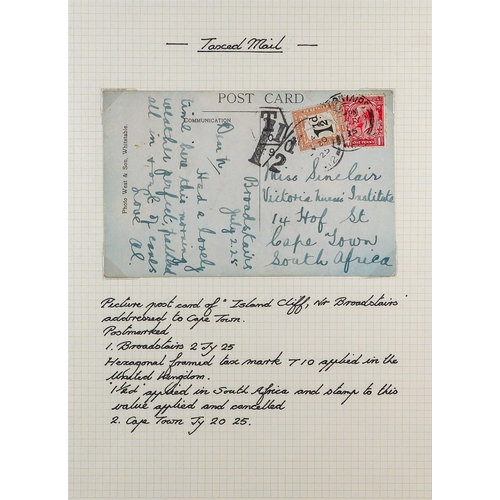 — Taxed Mail —
POST CARD
COMMUNICATION
Photo West & Son, Whitstable.
Broadstairs
July 2 25
Dear N,
Had a lovely
time here this morning
weather perfect, paddled
all in & out of caves
Love Al.
Miss Sinclair
Victoria Nurses Institute
14 Hof St
Cape Town
South Africa
T
10
1½d
ONE PENNY
Picture post card of "Island Cliff, Nr Broadstairs"
addressed to Cape Town.
Postmarked
1. Broadstairs 2 Jy 25
Hexagonal framed tax mark T10 applied in the
United Kingdom.
'1½d' applied in South Africa and stamp to this
value applied and cancelled
2. Cape Town Jy 20 25.